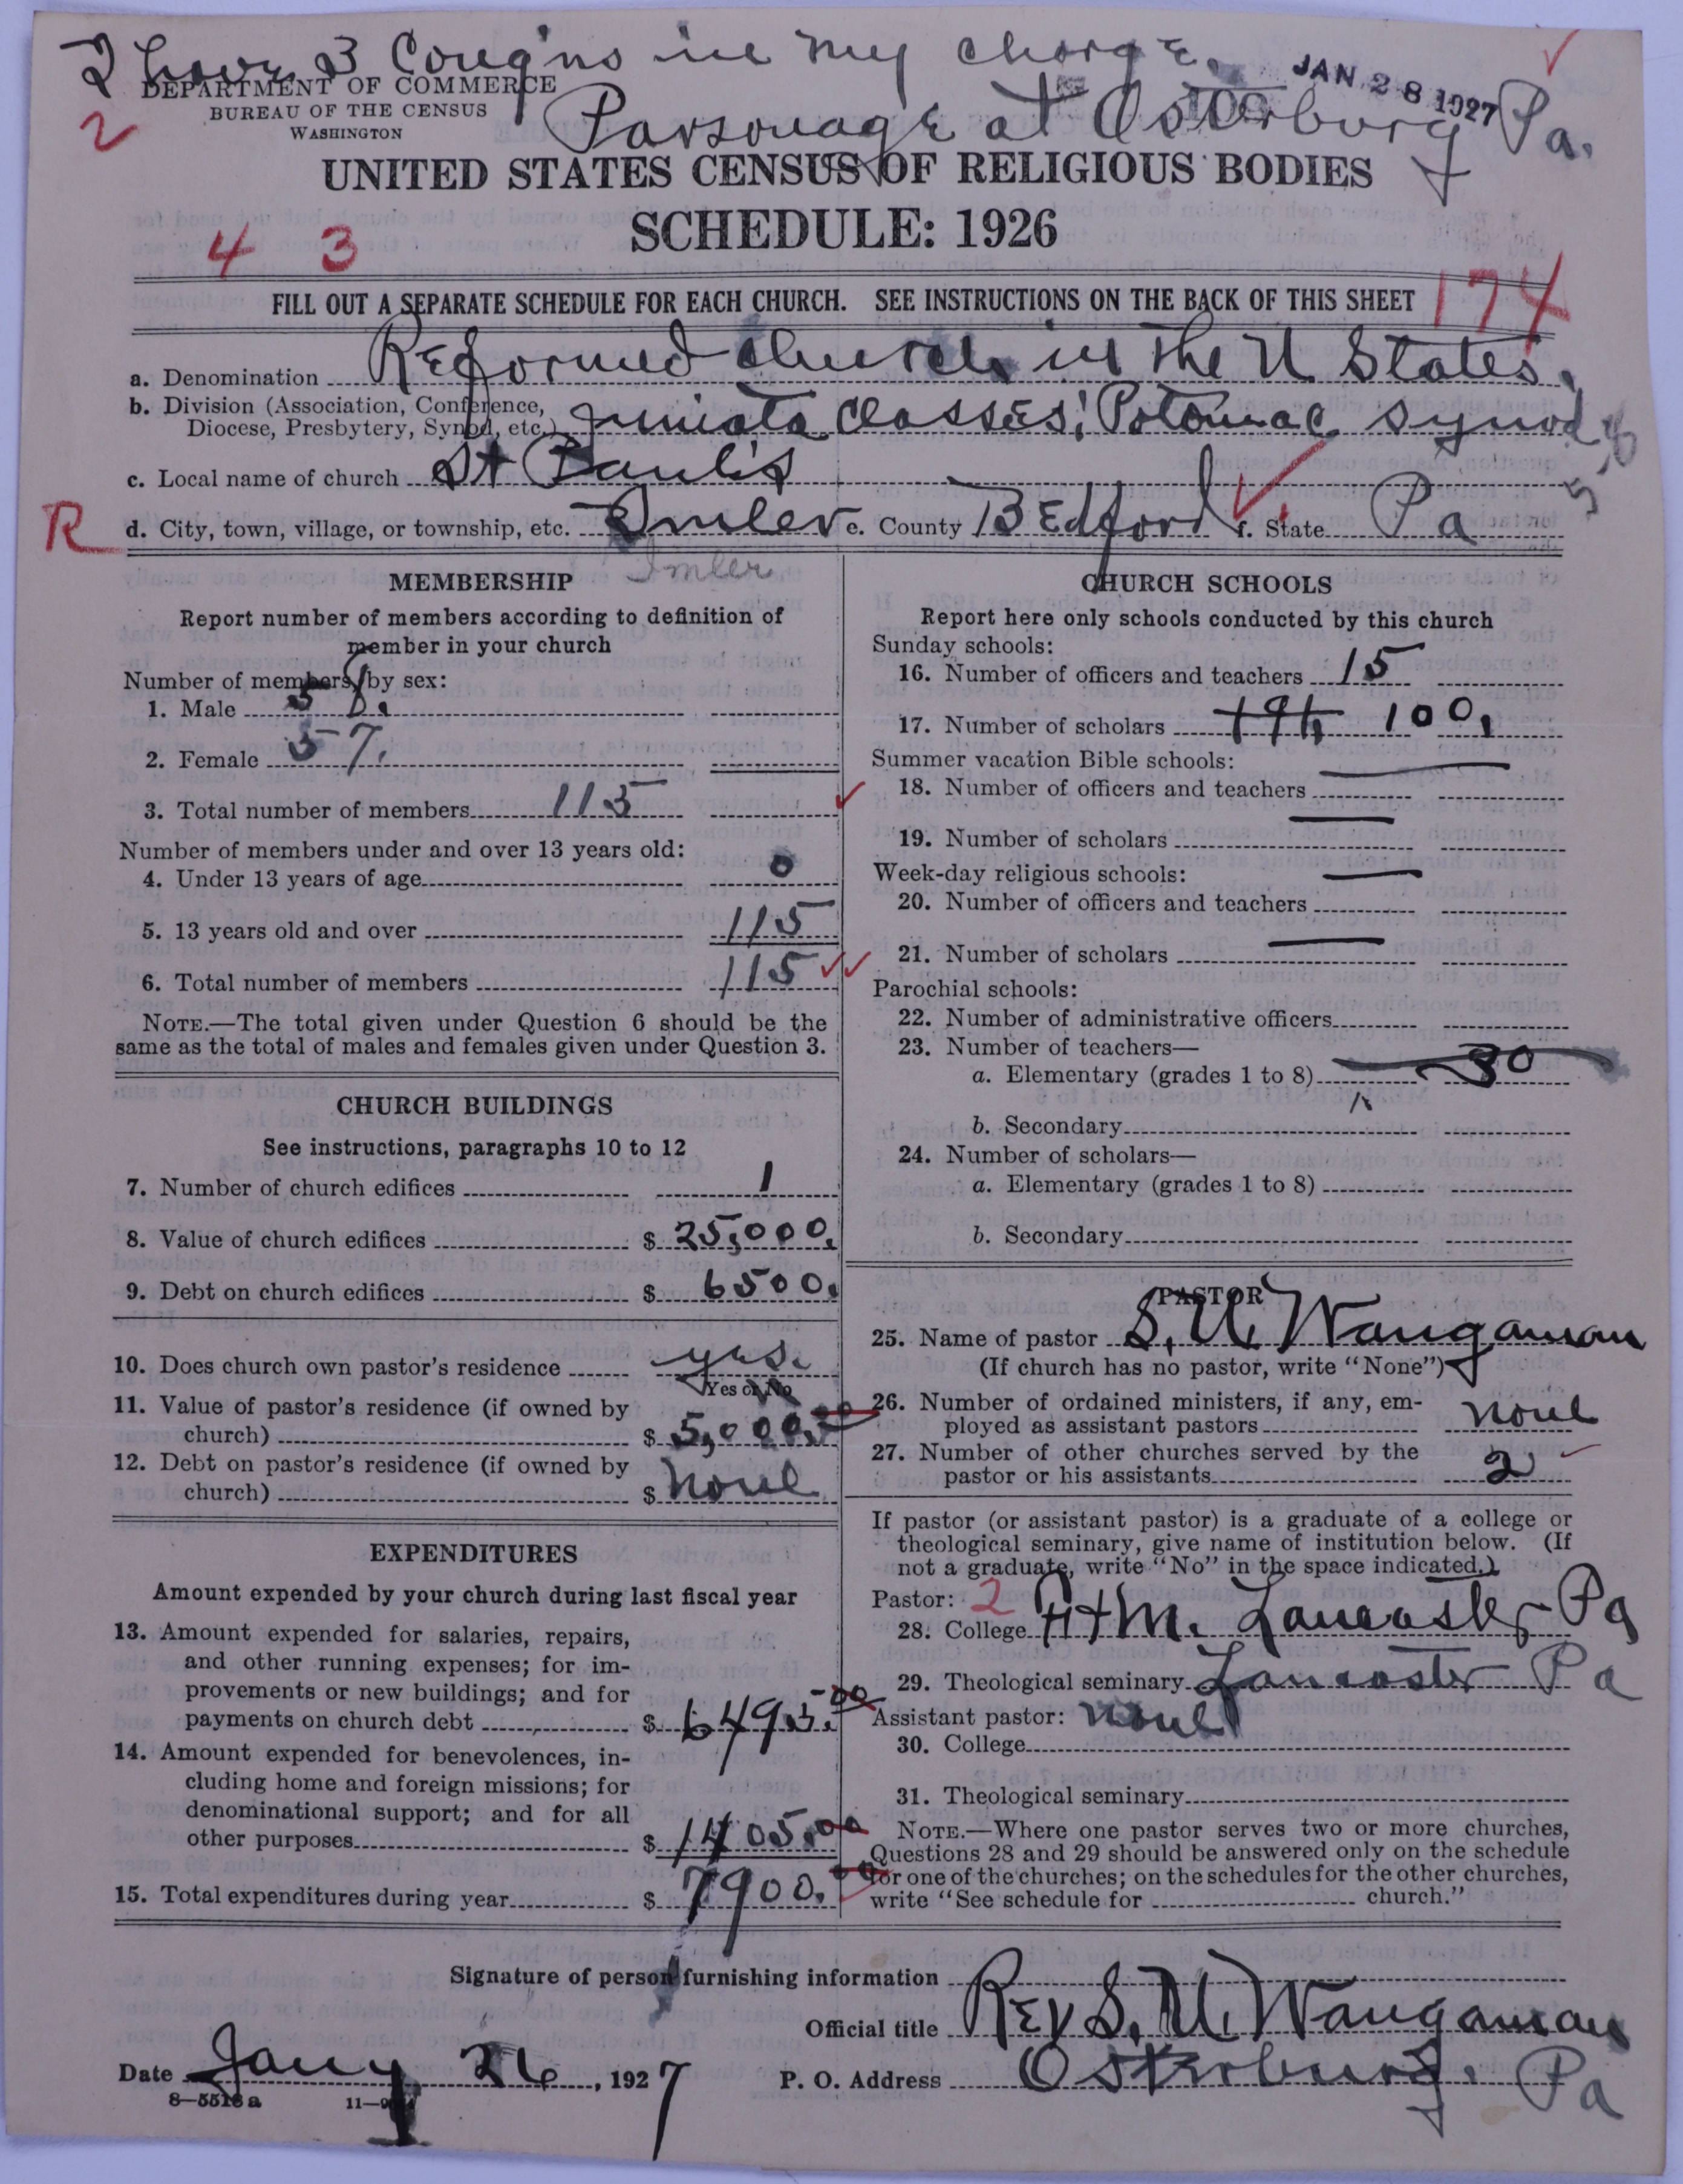 I have 3 Cong'ns in my charge.
JAN 28 1927
DEPARTMENT OF COMMERCE
BUREAU OF THE CENSUS
WASHINGTON
Parsonage at Osterburg Pa.
2
UNITED STATES CENSUS OF RELIGIOUS BODIES
SCHEDULE: 1926
4 3
FILL OUT A SEPARATE SCHEDULE FOR EACH CHURCH. SEE INSTRUCTIONS ON THE BACK OF THIS SHEET
174
a. Denomination Reformed church in the U States.
b. Division (Association, Conference, Diocese, Presbytery, Synod, etc.) Juniata Classes, Potomac Synod
c. Local name of church St Paul's
R
d. City, town, village, or township, etc. Imler e. County Bedford f. State Pa
Imler
MEMBERSHIP
Report number of members according to definition of
member in your church
Number of members by sex:
1. Male 58.
2. Female 57.
3. Total number of members 115
Number of members under and over 13 years old:
4. Under 13 years of age 0
5. 13 years old and over 115
6. Total number of members 115
NOTE.—The total given under Question 6 should be the
same as the total of males and females given under Question 3.
CHURCH BUILDINGS
See instructions, paragraphs 10 to 12
7. Number of church edifices 1
8. Value of church edifices $ 25,000.
9. Debt on church edifices $ 6500.
10. Does church own pastor's residence yes.
Yes or No
11. Value of pastor's residence (if owned by
church) $ 5,000.00
12. Debt on pastor's residence (if owned by
church) $ none
EXPENDITURES
Amount expended by your church during last fiscal year
13. Amount expended for salaries, repairs,
and other running expenses; for im-
provements or new buildings; and for
payments on church debt $ 6495.00
14. Amount expended for benevolences, in-
cluding home and foreign missions; for
denominational support; and for all
other purposes $ 1405.00
15. Total expenditures during year $ 7900.00
CHURCH SCHOOLS
Report here only schools conducted by this church
Sunday schools:
16. Number of officers and teachers 15
17. Number of scholars 100.
Summer vacation Bible schools:
18. Number of officers and teachers
19. Number of scholars
Week-day religious schools:
20. Number of officers and teachers
21. Number of scholars
Parochial schools:
22. Number of administrative officers
23. Number of teachers—
a. Elementary (grades 1 to 8)
b. Secondary
24. Number of scholars—
a. Elementary (grades 1 to 8)
b. Secondary
PASTOR
25. Name of pastor S. U. Waugaman
(If church has no pastor, write "None")
26. Number of ordained ministers, if any, em-
ployed as assistant pastors none
27. Number of other churches served by the
pastor or his assistants 2
If pastor (or assistant pastor) is a graduate of a college or
theological seminary, give name of institution below. (If
not a graduate, write "No" in the space indicated.)
Pastor: 2
28. College F+M. Lancaster Pa
29. Theological seminary Lancaster Pa
Assistant pastor: none
30. College
31. Theological seminary
NOTE.—Where one pastor serves two or more churches,
Questions 28 and 29 should be answered only on the schedule
for one of the churches; on the schedules for the other churches,
write "See schedule for church."
Signature of person furnishing information
Official title Rev S. U. Waugaman
Date Jany 26, 1927 P. O. Address Osterburg. Pa
8—5518a